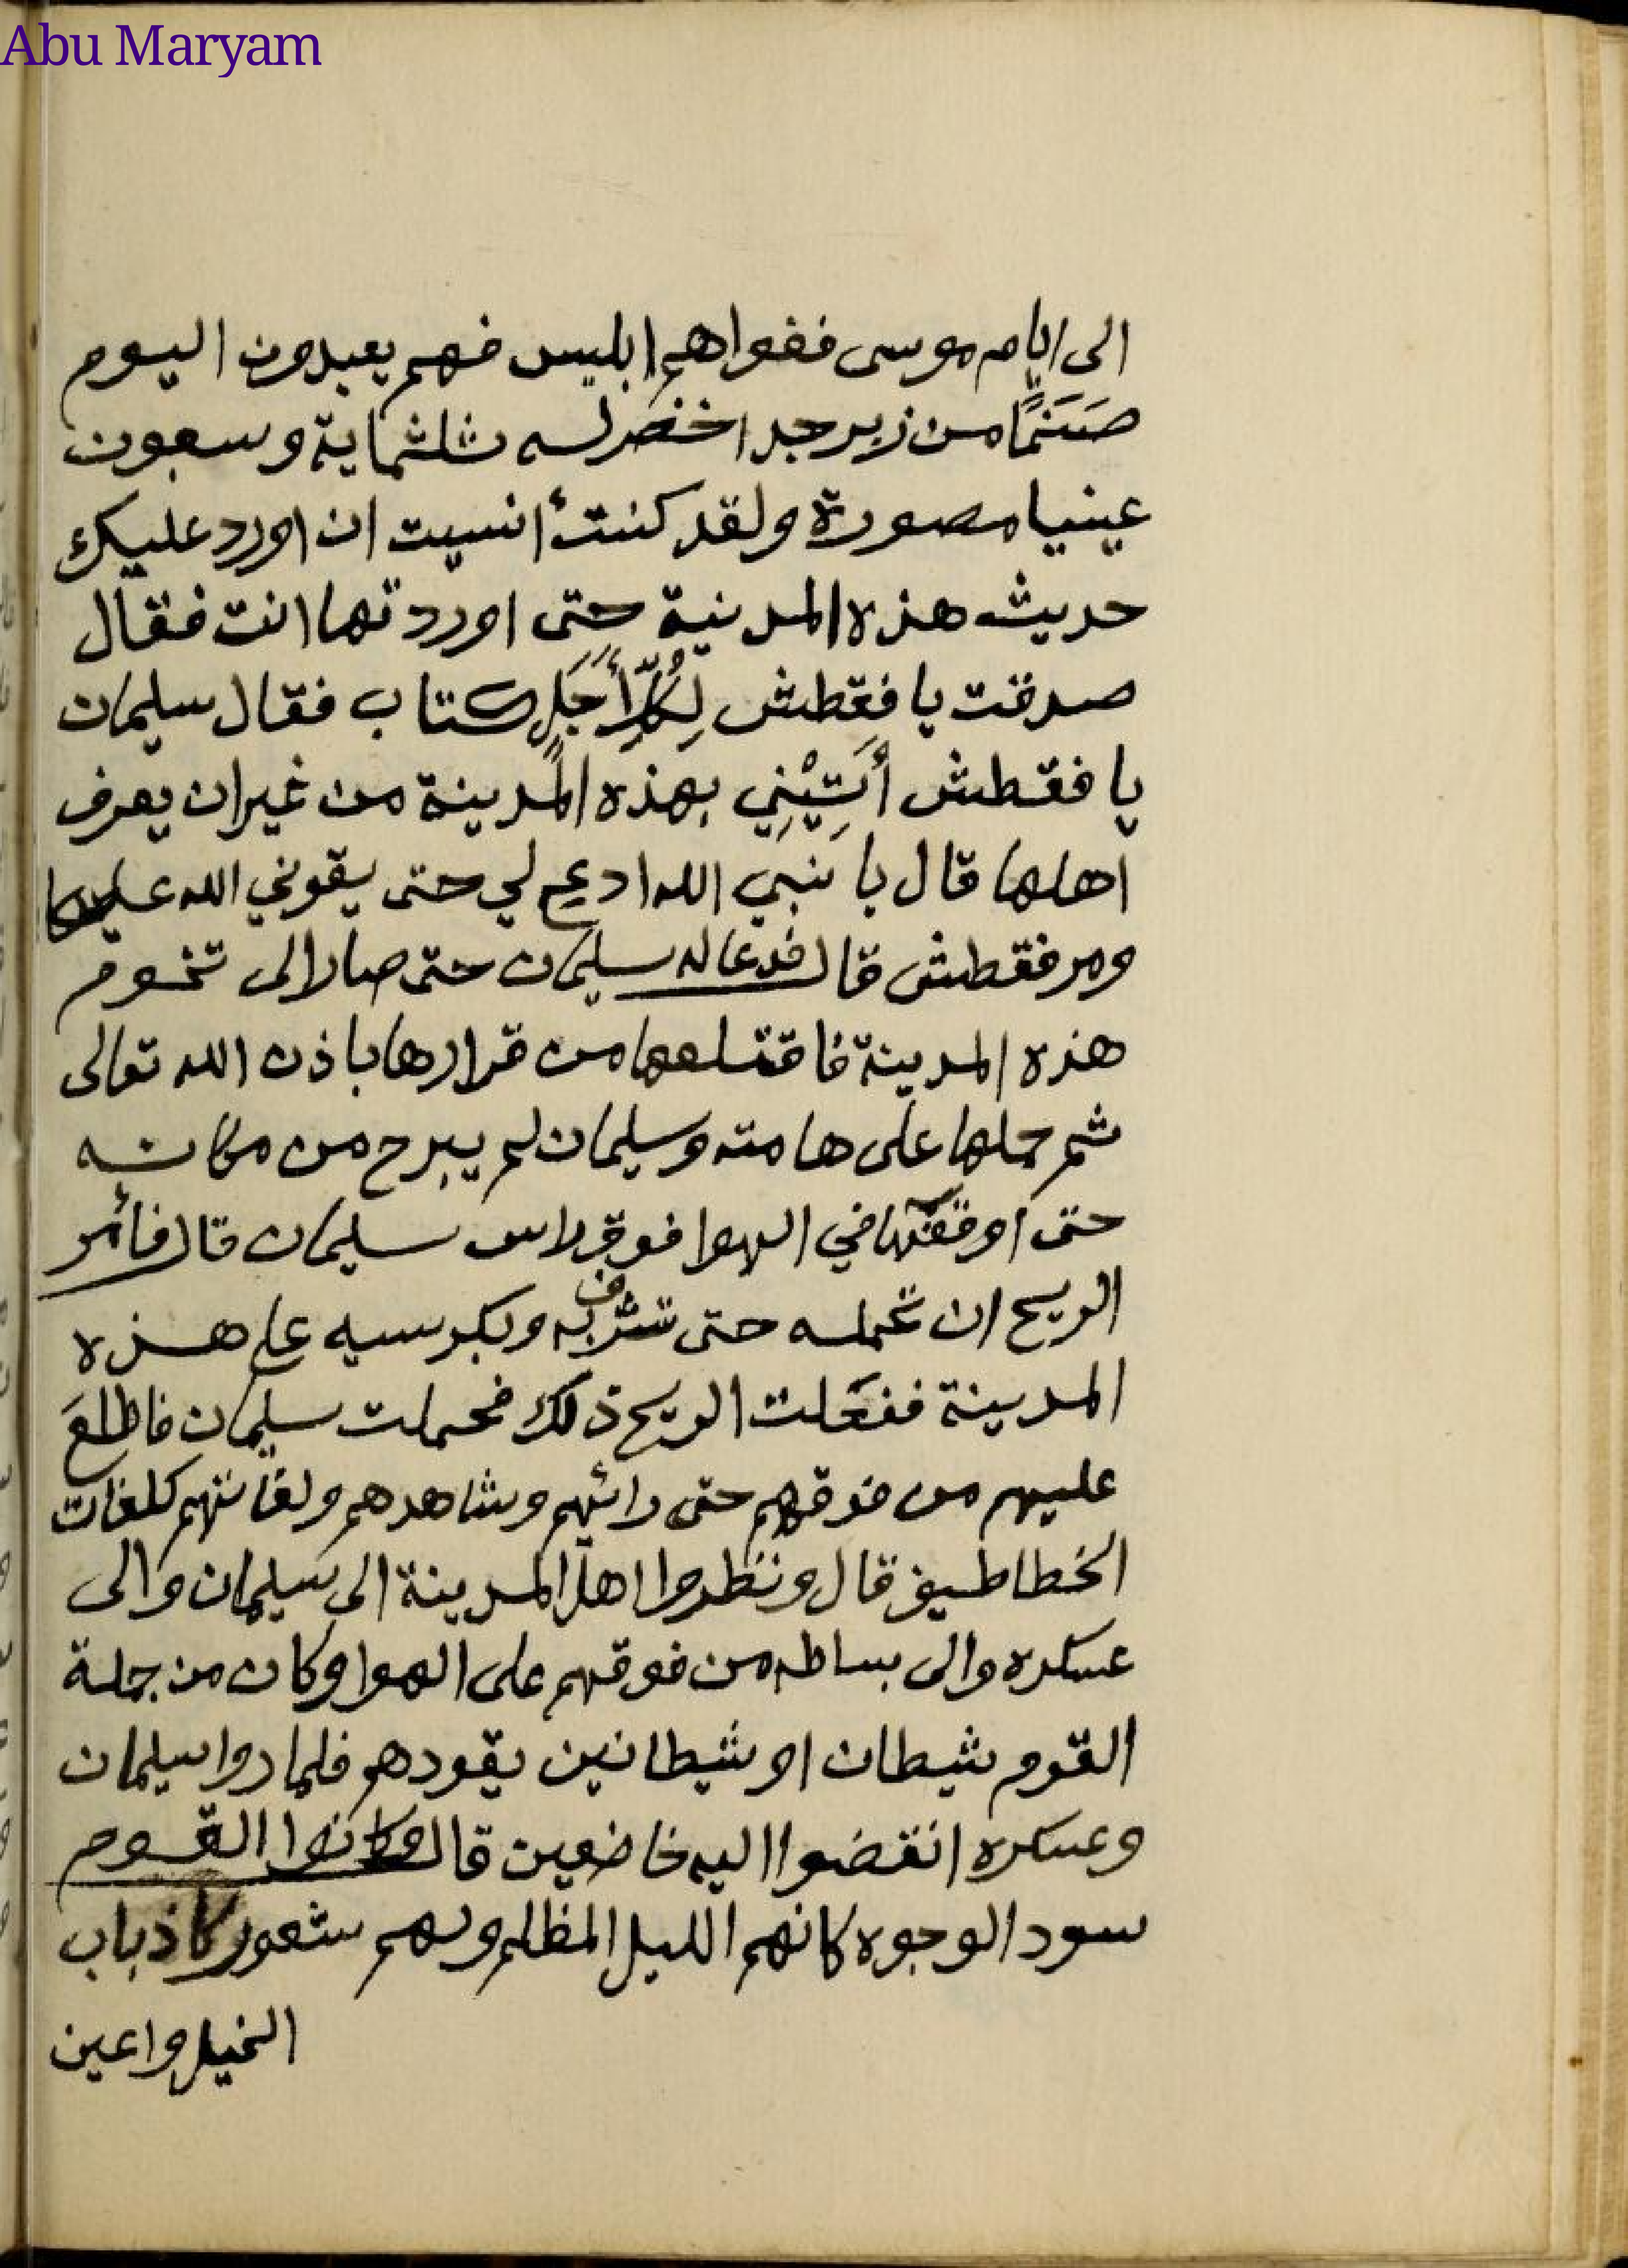 Abu Maryam
الى ايام موسى ففواهم ابليس فهم يعبدون اليوم
صَنَمًا من زبرجد اخضر له ثلثماية وسبعون
عينيا مصورة ولقد كنتُ أنسيت ان اورد عليك
حديث هذه المدنية حتى اوردتها انت فقال
صدقت يا فِقطش لِكُلِّ أَجَلٍ كتاب فقال سليمان
يا فقطش أَتِيْنِي بهذه المدينة من غير ان يعرف
اهلها قال يا نبي الله ادعِ لي حتى يقوني الله
ومر فقطش قال فدعا له سليمان حتى صار الى تخوم
هذه المدينة فاقتلعها من قرارها باذن الله تعالى
ثم حملها على هامته وسليمان لم يبرح من مكانه
حتى اوقفها في الهوا فوق راس سليمان قال فأمر
الريح ان تحمله حتى تشرف به وبكرسيه على هذه
المدينة ففعَلت الريح ذلك فحملت سليمان فاطلعَ
عليهم من فوقهم حتى رائهم وشاهدهم ولغاتهم كلغات
الخطاطيف قال ونظروا اهل المدينة الى سليمان والى
عسكره والى بساطه من فوقهم على الهوا وكان من جملة
القوم شيطان او شيطانين يقودهم فلما روا سليمان
وعسكره انقضوا اليه خاضعين قال وكانوا القوم
سود الوجوه كانهم الليل المظلم ولهم شعور كاذباب
الخيل واعين